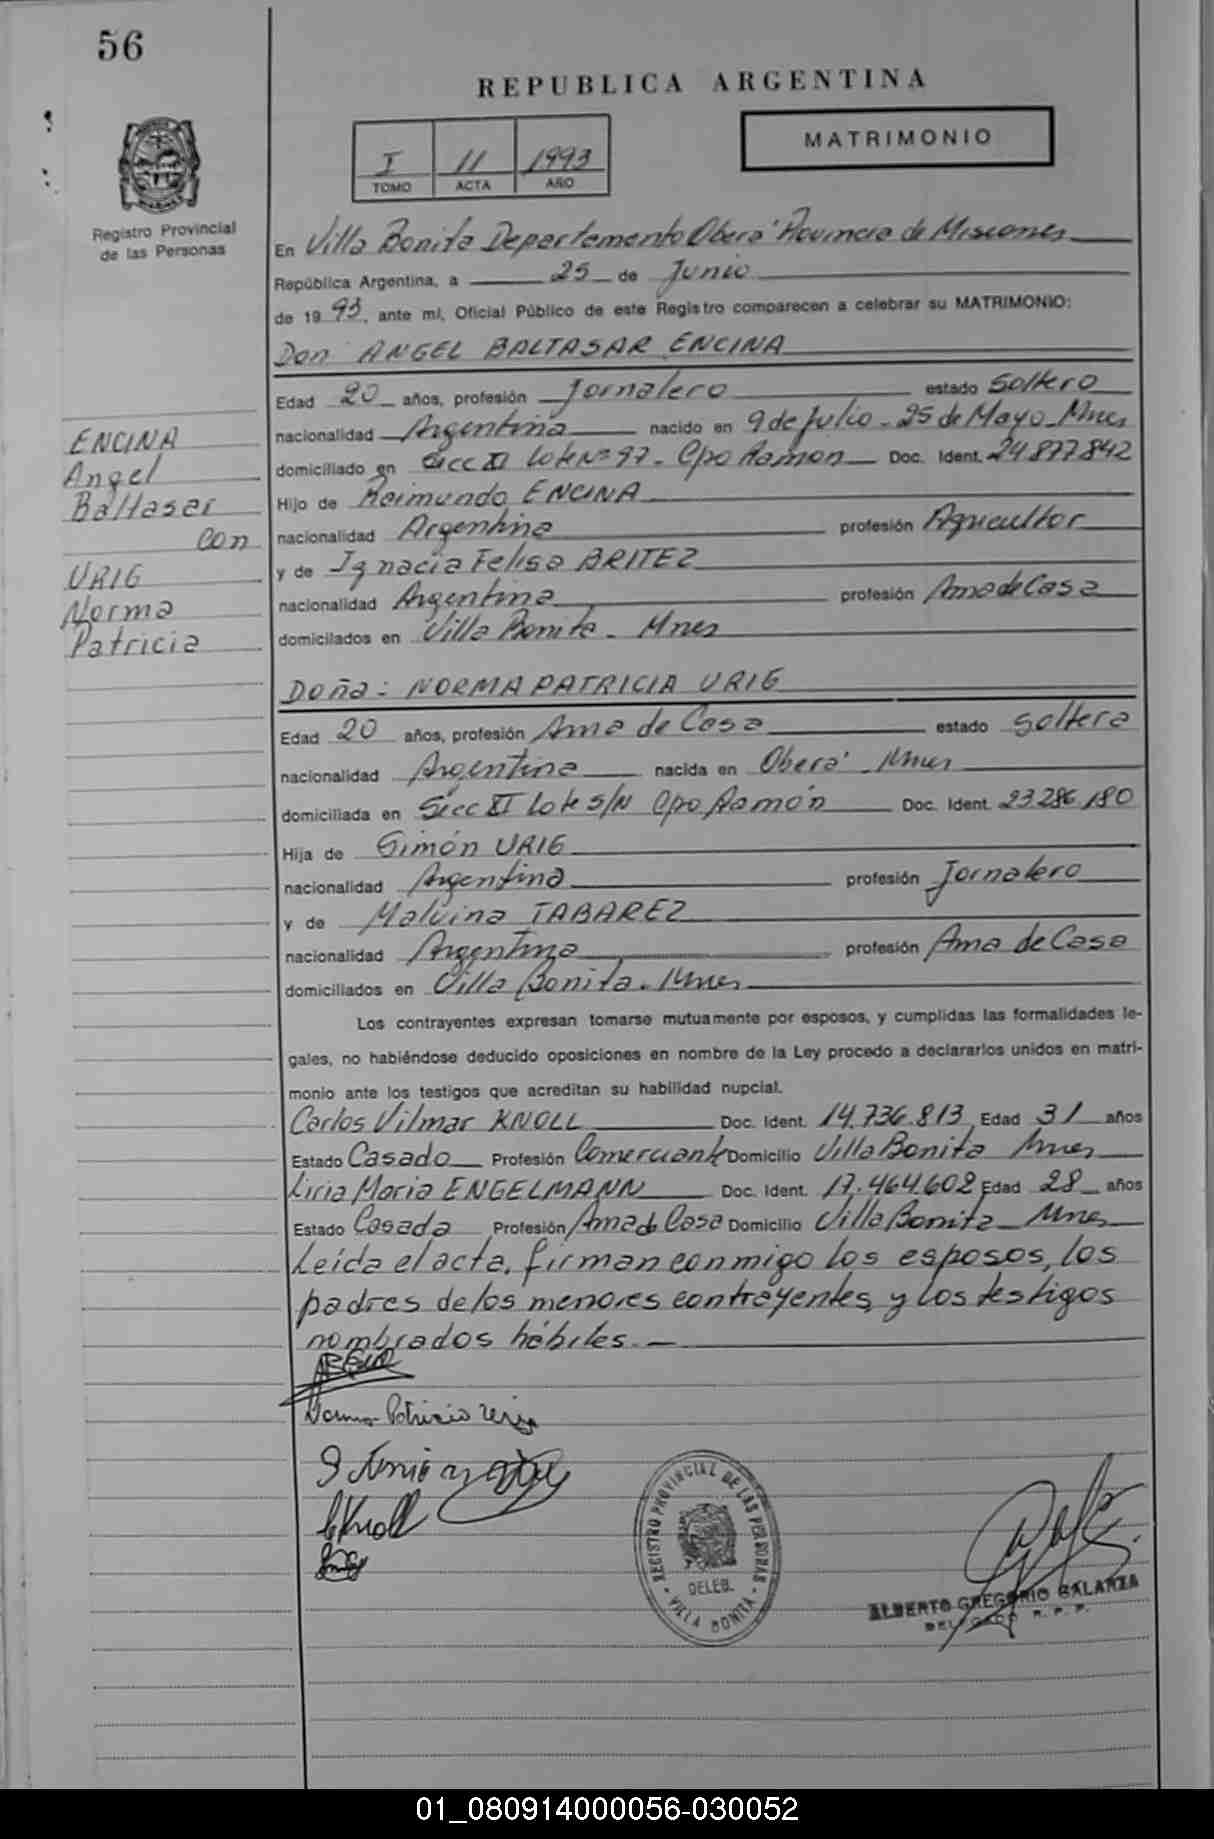 56
REPUBLICA ARGENTINA
MATRIMONIO
I 11 1993
TOMO ACTA AÑO
Registro Provincial
de las Personas
En Villa Bonita Departamento Oberá Provincia de Misiones
República Argentina, a 25 de Junio
de 19 93, ante mí, Oficial Público de este Registro comparecen a celebrar su MATRIMONIO:
Don ANGEL BALTASAR ENCINA
Edad 20 años, profesión Jornalero estado Soltero
nacionalidad Argentina nacido en 9 de Julio - 25 de Mayo - Mnes
domiciliado en Secc XI Lote Nº 97 - Cpo Ramon Doc. Ident. 24.877.842
Hijo de Raimundo ENCINA
nacionalidad Argentina profesión Agricultor
y de Ignacia Felisa BRITEZ
nacionalidad Argentina profesión Ama de Casa
domicilados en Villa Bonita - Mnes
ENCINA
Angel
Baltasar
con
URIG
Norma
Patricia
Doña: NORMA PATRICIA URIG
Edad 20 años, profesión Ama de Casa estado Soltera
nacionalidad Argentina nacida en Oberá - Mnes
domiciliada en Secc XI Lote S/N Cpo Ramón Doc. Ident. 23.286.180
Hija de Simón URIG
nacionalidad Argentina profesión Jornalero
y de Malvina TABAREZ
nacionalidad Argentina profesión Ama de Casa
domiciliados en Villa Bonita - Mnes
Los contrayentes expresan tomarse mutuamente por esposos, y cumplidas las formalidades le-
gales, no habiéndose deducido oposiciones en nombre de la Ley procedo a declararlos unidos en matri-
monio ante los testigos que acreditan su habilidad nupcial.
Carlos Vilmar KNOLL Doc. Ident. 14.736.813 Edad 31 años
Estado Casado Profesión Comerciante Domicilio Villa Bonita Mnes
Liria Maria ENGELMANN Doc. Ident. 17.464.602 Edad 28 años
Estado Casada Profesión Ama de Casa Domicilio Villa Bonita - Mnes
Leída el acta, firman conmigo los esposos, los
padres de los menores contrayentes, y los testigos
nombrados hábiles. -
Norma Patricia
Knoll
REGISTRO PROVINCIAL DE LAS PERSONAS
DELEG.
- VILLA BONITA -
ALBERTO GREGORIO GALARZA
DELEGADO R. P. P.
01_080914000056-030052